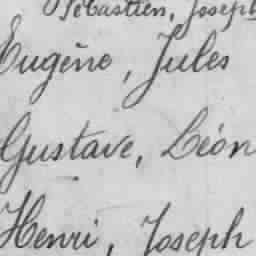 Sébastien, Joseph
Eugène, Jules
Gustave, Léon
Henri, Joseph